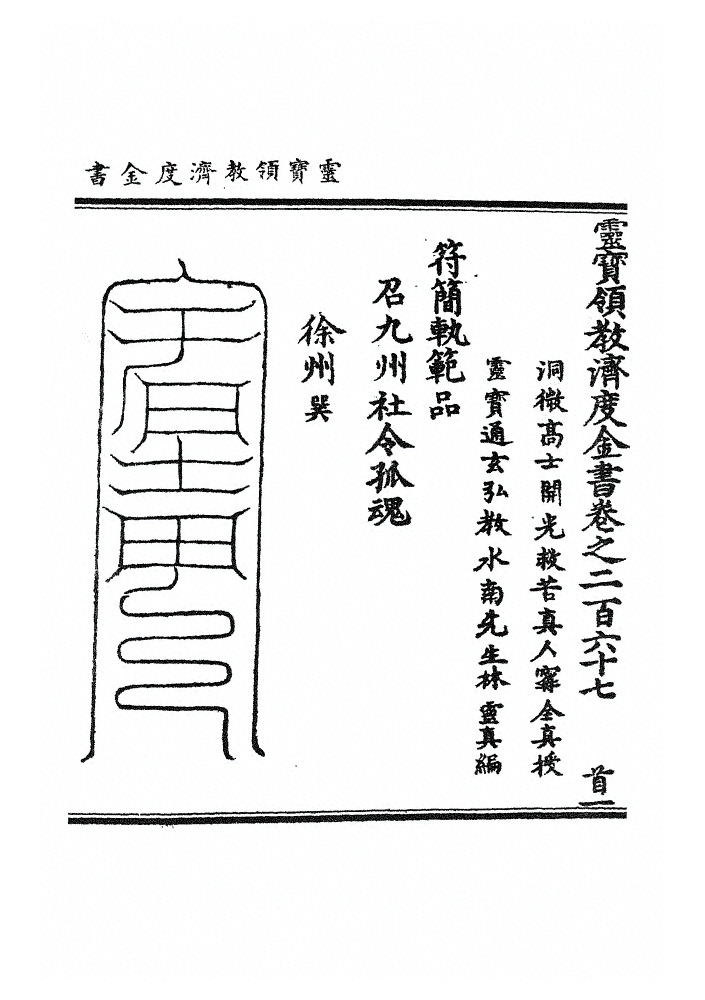 靈寶領教濟度金書
靈寶領教濟度金書卷之二百六十七 首一
洞微高士開光救苦真人寗全真授
靈寶通玄弘教水南先生林靈真編
符簡軌範品
召九州社令孤魂
徐州巽